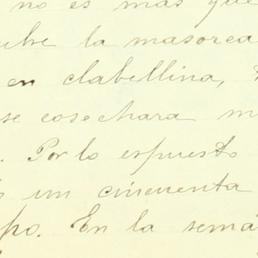 no es mas que
la masorca
en clabellina,
se cosechara m
. Por lo espuesto
s un cincuenta
po. En la sema